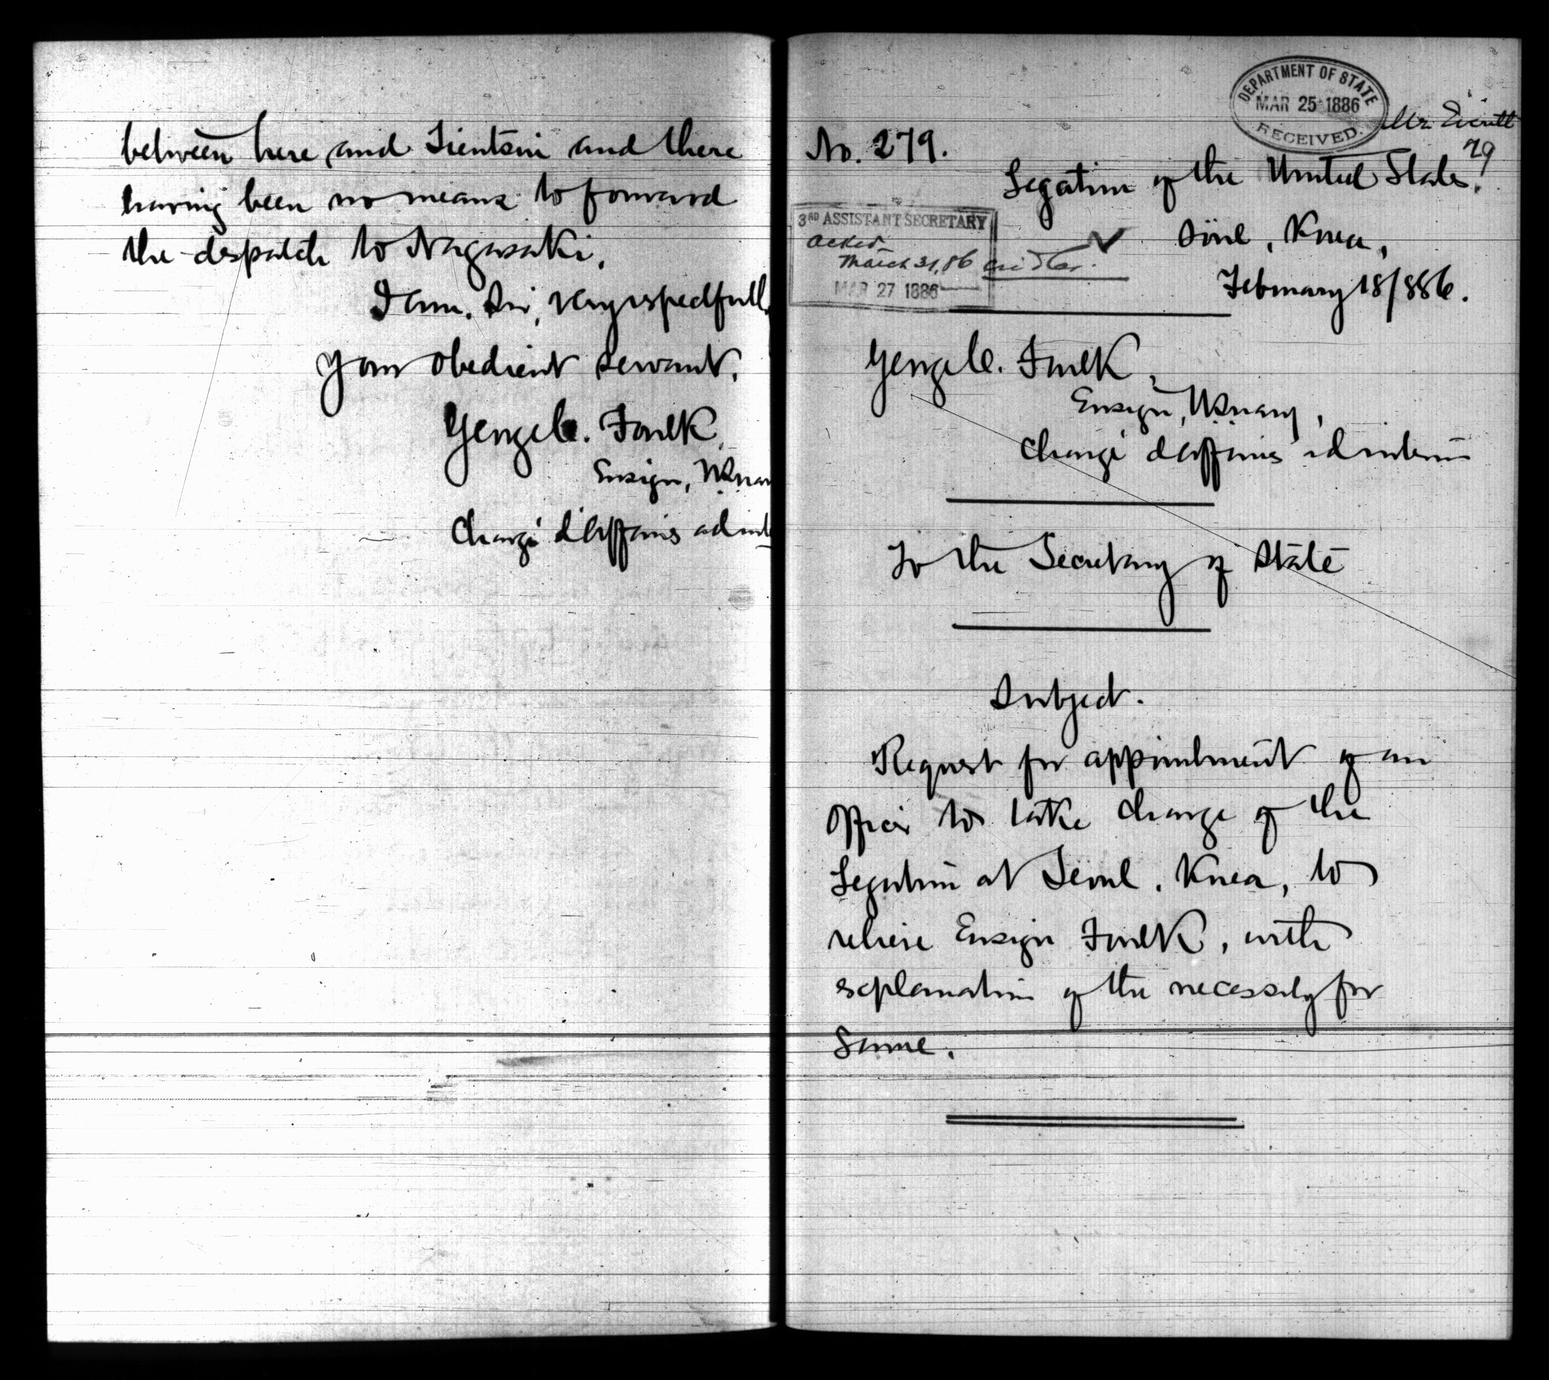 between here and Tientsin and there
having been no means to forward
the despatch to Nagasaki.
I am, Sir, very respectfully
Your obedient servant,
George C. Foulk,
Ensign, U.S. Navy
Chargé d'Affaires ad int
DEPARTMENT OF STATE
MAR 25 1886
RECEIVED.
Mr. Everett
79
No. 279.
Legation of the United States,
Söul, Korea,
February 18/886.
3RD ASSISTANT SECRETARY
March 31, 86
MAR 27 1886
George C. Foulk,
Ensign, U.S. Navy,
Chargé d'Affaires ad interim
To the Secretary of State
Subject.
Request for appointment of an
officer to take charge of the
Legation at Seoul, Korea, to
relieve Ensign Foulk, with
explanation of the necessity for
same.